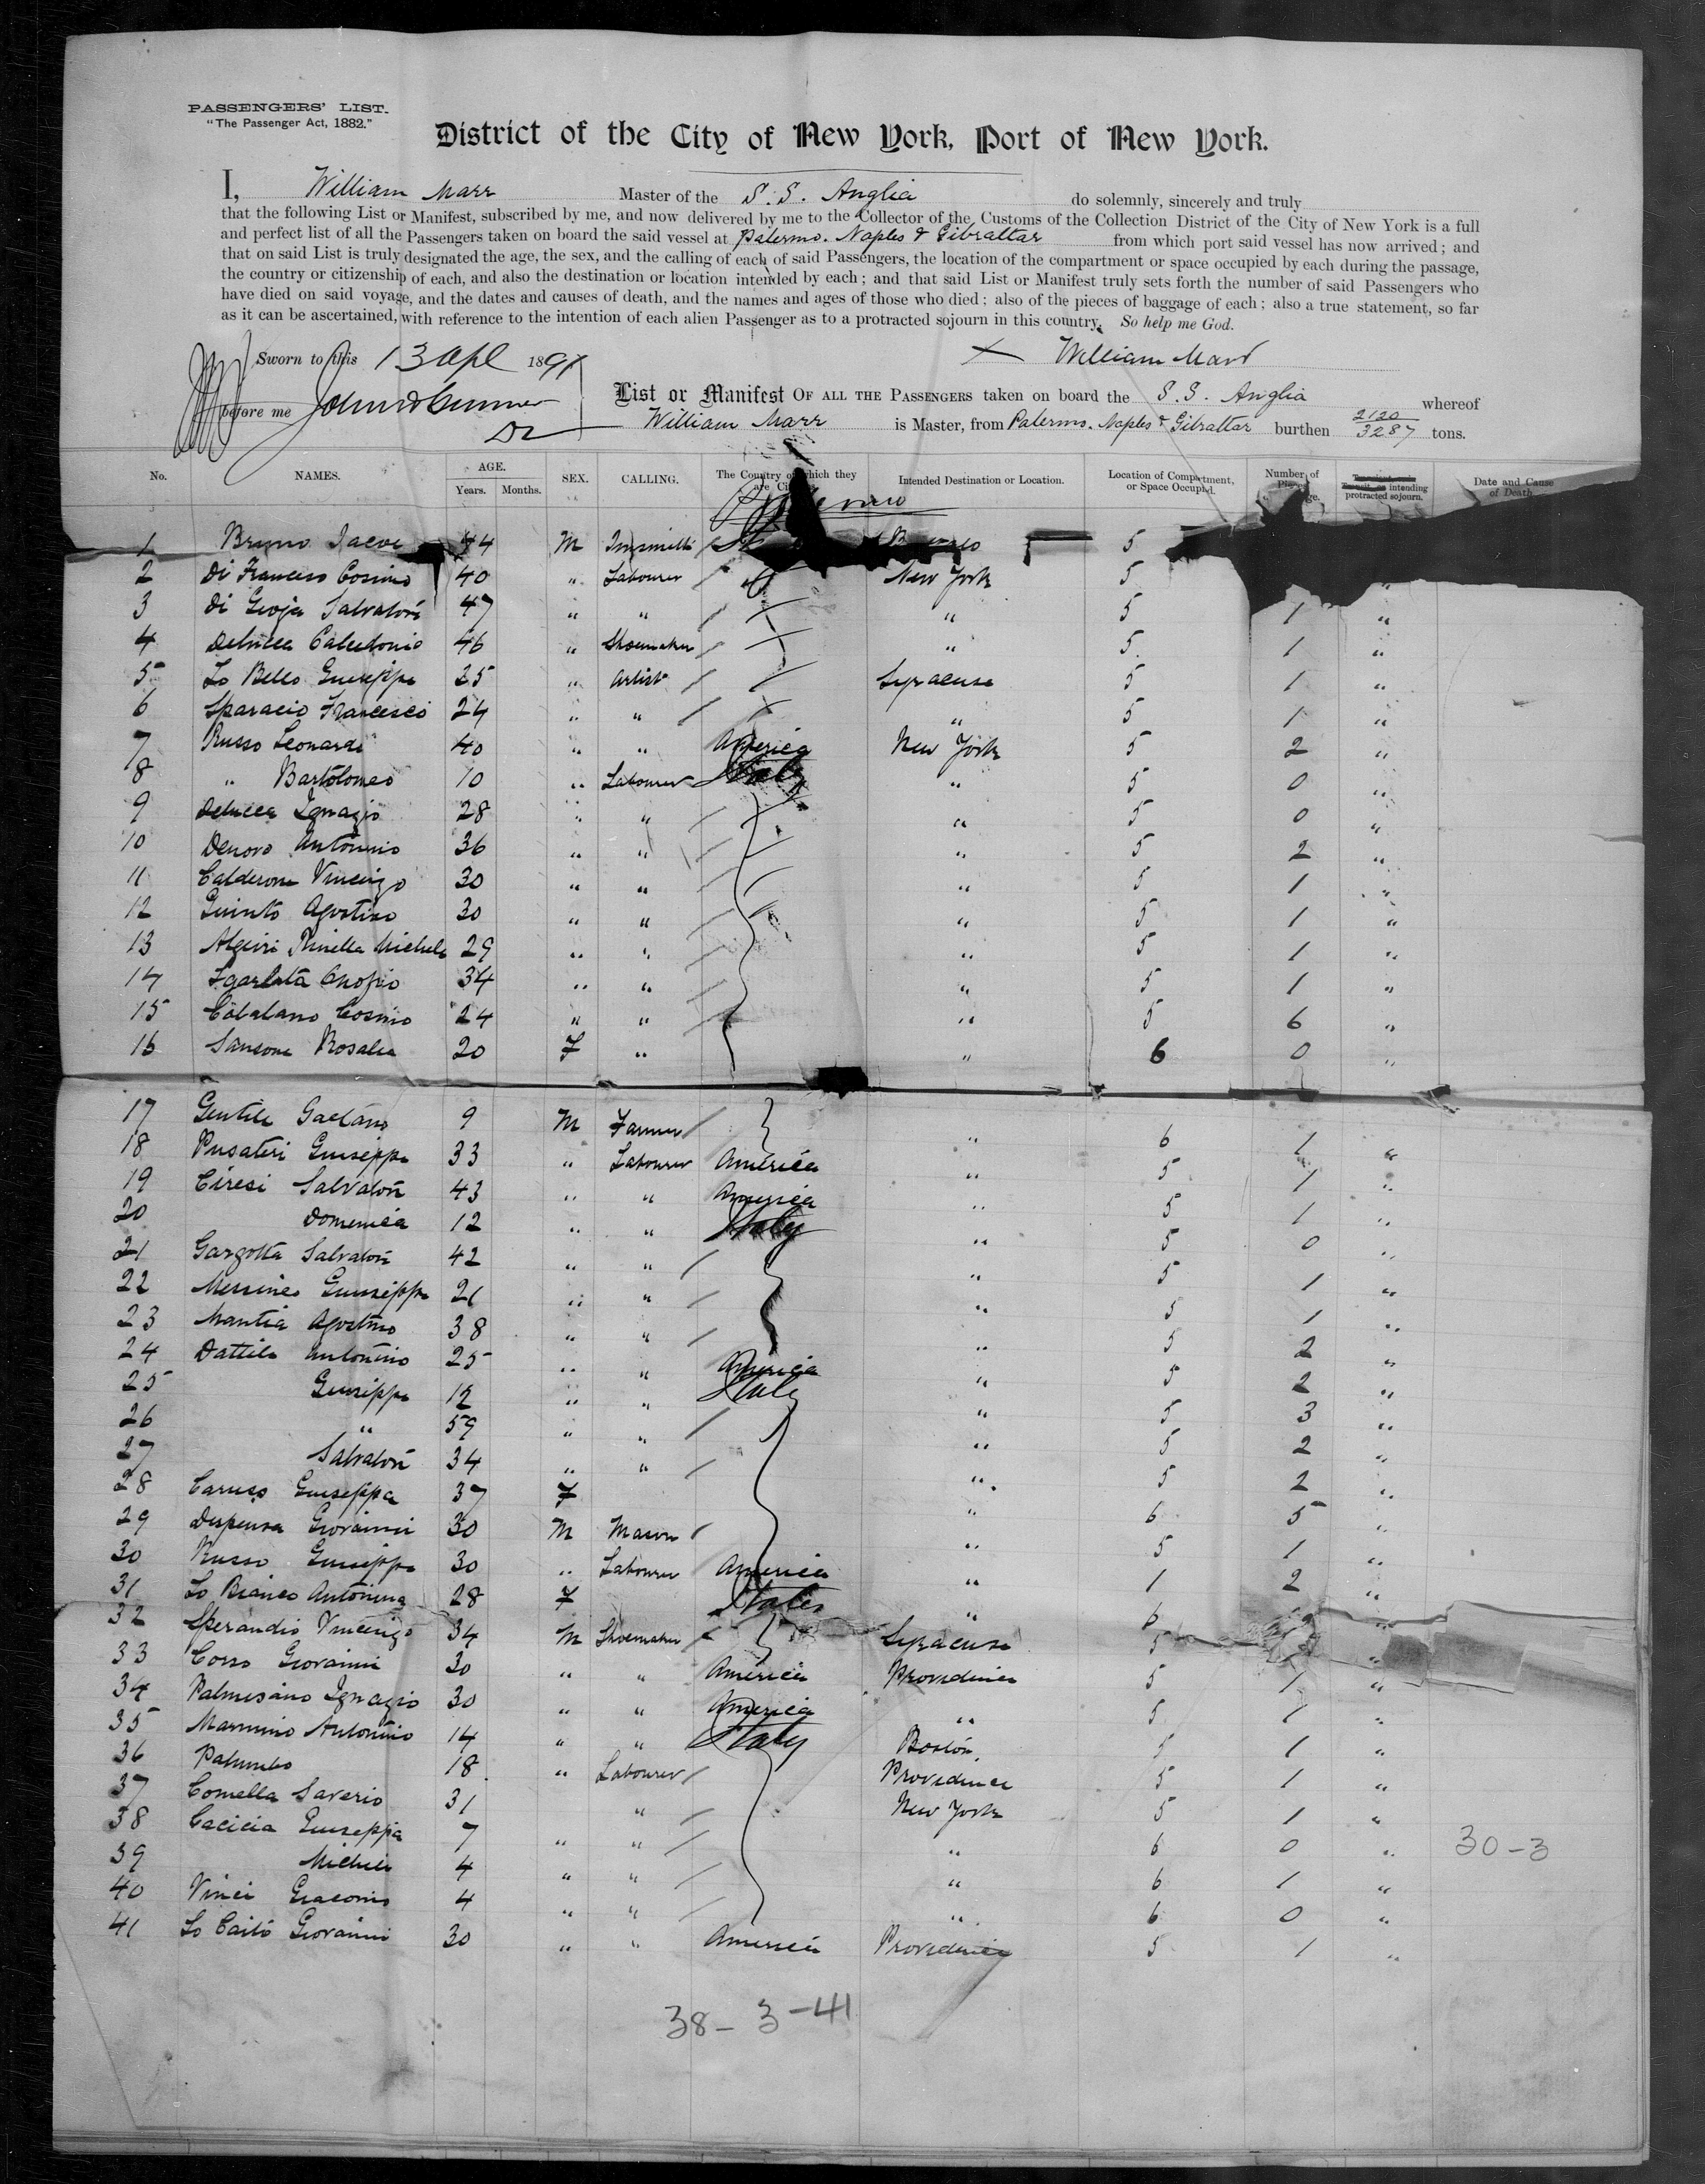 PASSENGERS' LIST.
"The Passenger Act, 1882."
District of the City of New York, Port of New York.
I, William Marr Master of the S.S. Anglia do solemnly, sincerely and truly
that the following List or Manifest, subscribed by me, and now delivered by me to the Collector of the Customs of the Collection District of the City of New York is a full
and perfect list of all the Passengers taken on board the said vessel at Palermo. Naples & Gibraltar from which port said vessel has now arrived; and
that on said List is truly designated the age, the sex, and the calling of each of said Passengers, the location of the compartment or space occupied by each during the passage,
the country or citizenship of each, and also the destination or location intended by each; and that said List or Manifest truly sets forth the number of said Passengers who
have died on said voyage, and the dates and causes of death, and the names and ages of those who died; also of the pieces of baggage of each; also a true statement, so far
as it can be ascertained, with reference to the intention of each alien Passenger as to a protracted sojourn in this country. So help me God.
Sworn to this 13 Apl 1891 William Marr
before me
List or Manifest OF ALL THE PASSENGERS taken on board the S.S. Anglia whereof
William Marr is Master, from Palermo. Naples & Gibraltar burthen 2120 3287 tons.
No. NAMES. AGE. Years. Months. SEX. CALLING. The Country of which they are Intended Destination or Location. Location of Compartment, or Space Occupied. Number of intending protracted sojourn. Date and Cause of Death
1 Bruno 44 M 5
2 Di Francesco Cosimo 40 " Labourer New York 5 "
3 Di Gioja Salvatori 47 " " " 5 1 "
4 Delucca 46 " Shoemaker " 5 1 "
5 Lo Bello Guiseppe 25 " Artist Syracuse 5 1 "
6 Sparacio Francesco 24 " " " 5 1 "
7 Russo Leonardi 40 " " America New York 5 2 "
8 " Bartolomeo 10 " Labourer Italy " 5 0 "
9 Delucca Ignazio 28 " " " 5 0 "
10 Denovo Antonino 36 " " " 5 2 "
11 Calderone Vincenzo 30 " " " 5 1 "
12 Guinto Agostino 30 " " " 5 1 "
13 Michele 29 " " " 5 1 "
14 Sgarlata Onofrio 34 " " " 5 1 "
15 Catalano Cosimo 24 " " " 5 6 "
16 Sansone Rosalia 20 F " " 6 0 "
17 Gentile Gaetano 9 M Farmer " 6 1 "
18 Pusateri Guiseppe 33 " Labourer America " 5 1 "
19 Ciresi Salvatori 43 " " America " 5 1 "
20 Domenica 12 " " Italy " 5 0 "
21 Gargotta Salvatori 42 " " " 5 1 "
22 Messineo Guiseppe 21 " " " 5 1 "
23 Mantia Agostino 38 " " " 5 2 "
24 Dattilo Antonino 25 " " America " 5 2 "
25 Guiseppe 12 " " Italy " 5 3 "
26 " 59 " " " 5 2 "
27 Salvatori 34 " " " 5 2 "
28 Caruso Guiseppa 37 F " 6 5 "
29 Dispensa Giovanni 30 M Mason " 5 1 "
30 Russo Guiseppe 30 " Labourer America " 1 2 "
31 Lo Bianco Antonina 28 F Italy " 6
32 Sperandio Vincenzo 34 M Shoemaker Syracuse 5 "
33 Corso Giovanni 30 " " America Providence 5 1 "
34 Palmesano Ignazio 30 " " America " 5 1 "
35 Antonino 14 " " Italy Boston 5 1 "
36 Palumbo 18 " Labourer Providence 5 1 "
37 Comella Saverio 31 " New York 5 1 "
38 Cacicia Guiseppa 7 " " " 6 0 "
39 Michele 4 " " " 6 1 "
40 Vinci Giacomo 4 " " " 6 0 "
41 Lo Caito Giovanni 30 " " America Providence 5 1 "
30-3
38-3-41